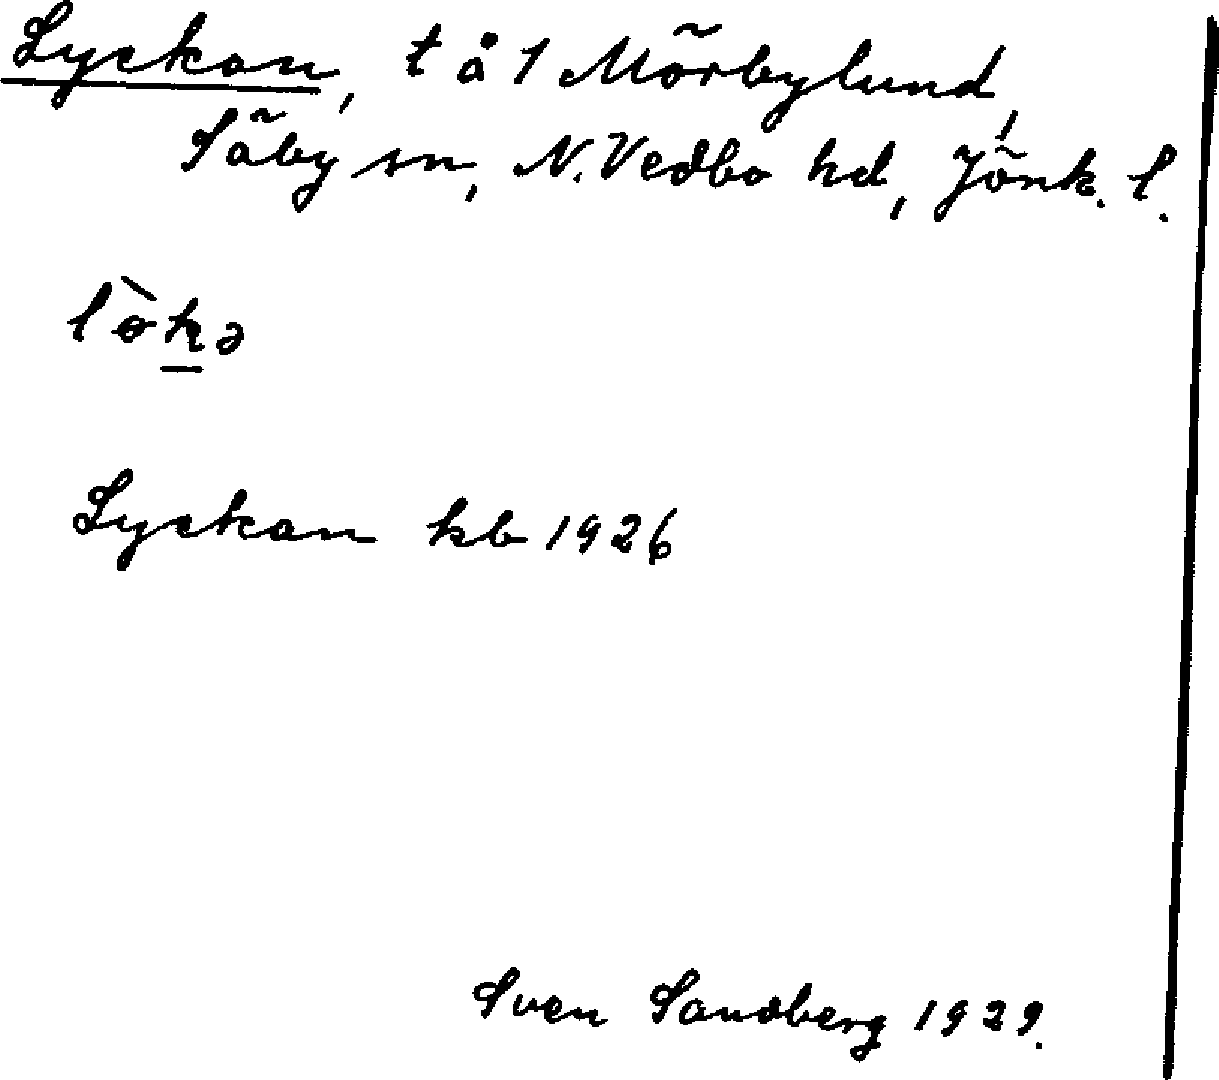 Lyckan, t å 1 Mörbylund,
Säby sn, N. Vedbo hd, Jönk. l.
lòkə
Lyckan kb 1926
Sven Sandberg 1929.